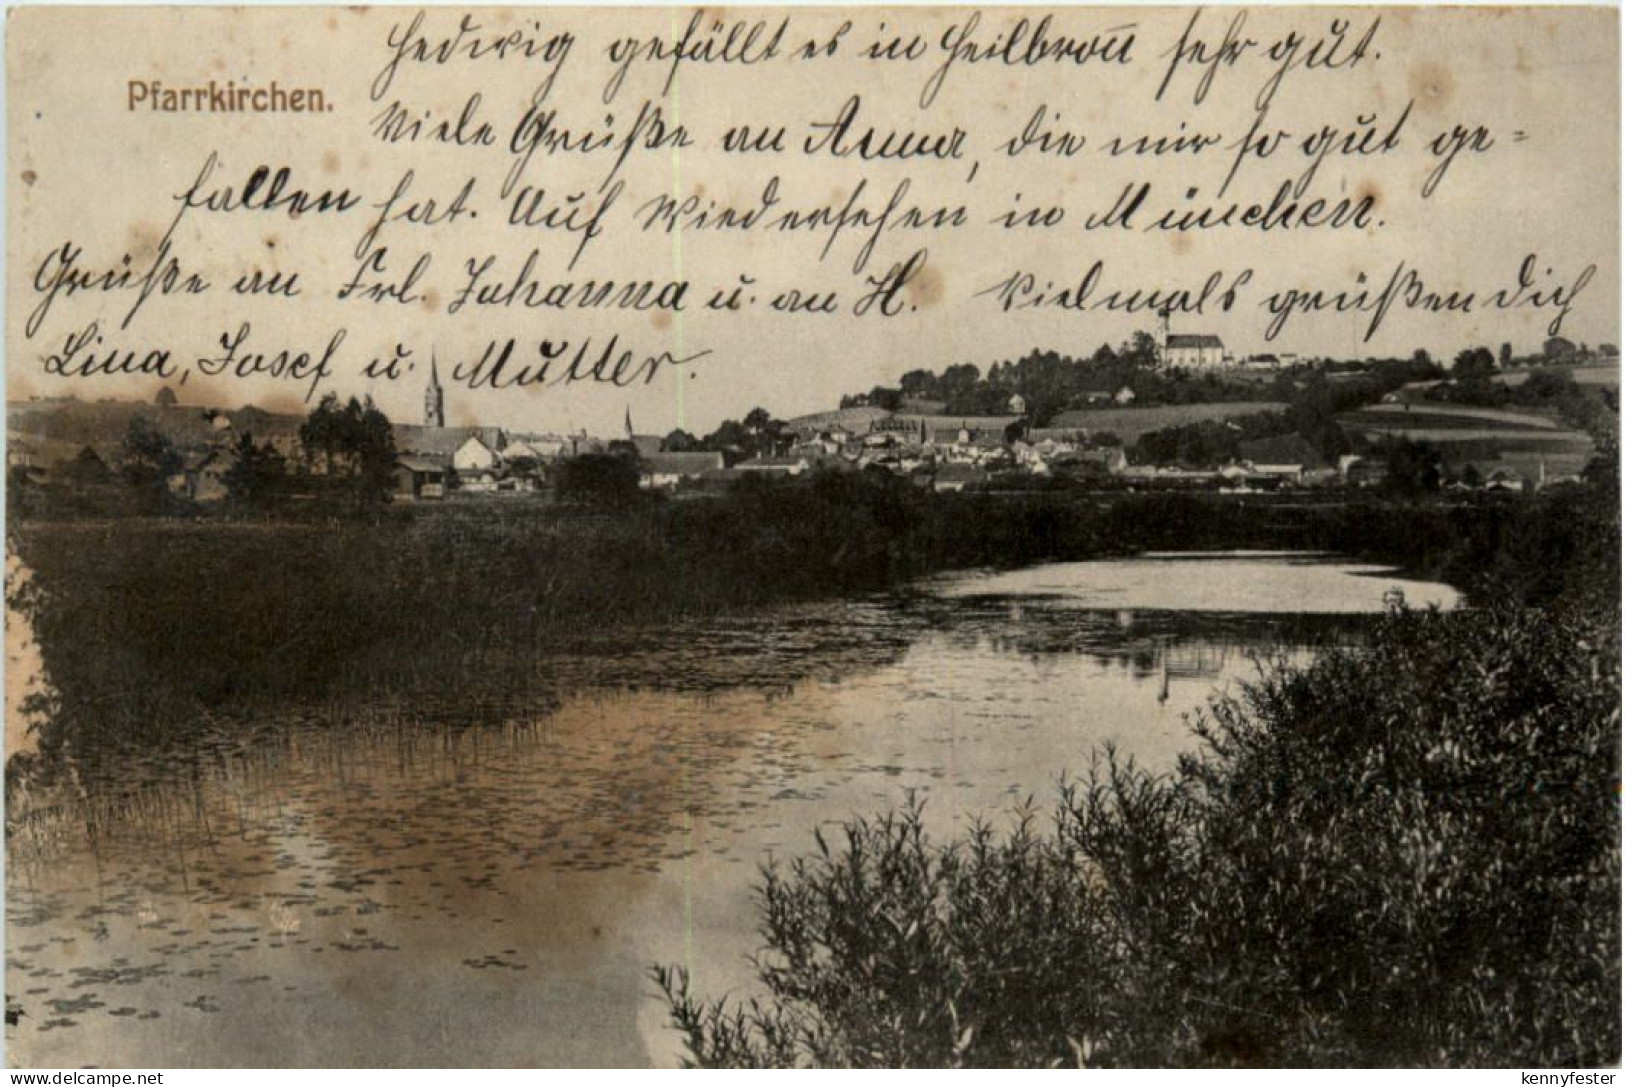 Hedwig gefällt es in Heilbron̄ sehr gut.
Pfarrkirchen.
Viele Grüße an Anna, die mir so gut ge=
fallen hat. Auf Wiedersehen in München.
Grüße an Frl. Johanna u. an H. Vielmals grüßen dich
Lina, Josef u. Mutter.
akpool.de
kennyfester